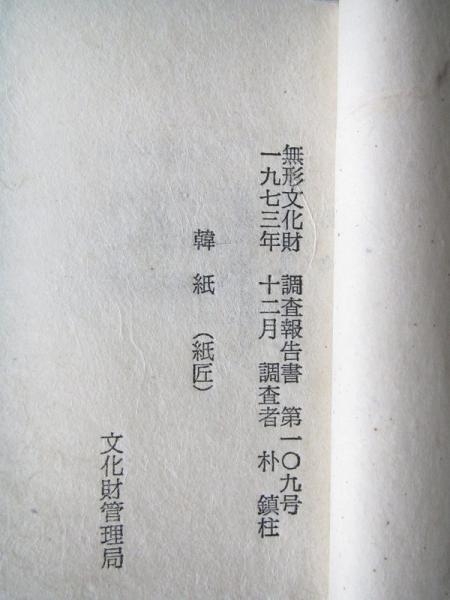 無形文化財 調査報告書 第一〇九号
一九七三年 十二月 調査者 朴 鎮柱
韓 紙 (紙匠)
文化財管理局